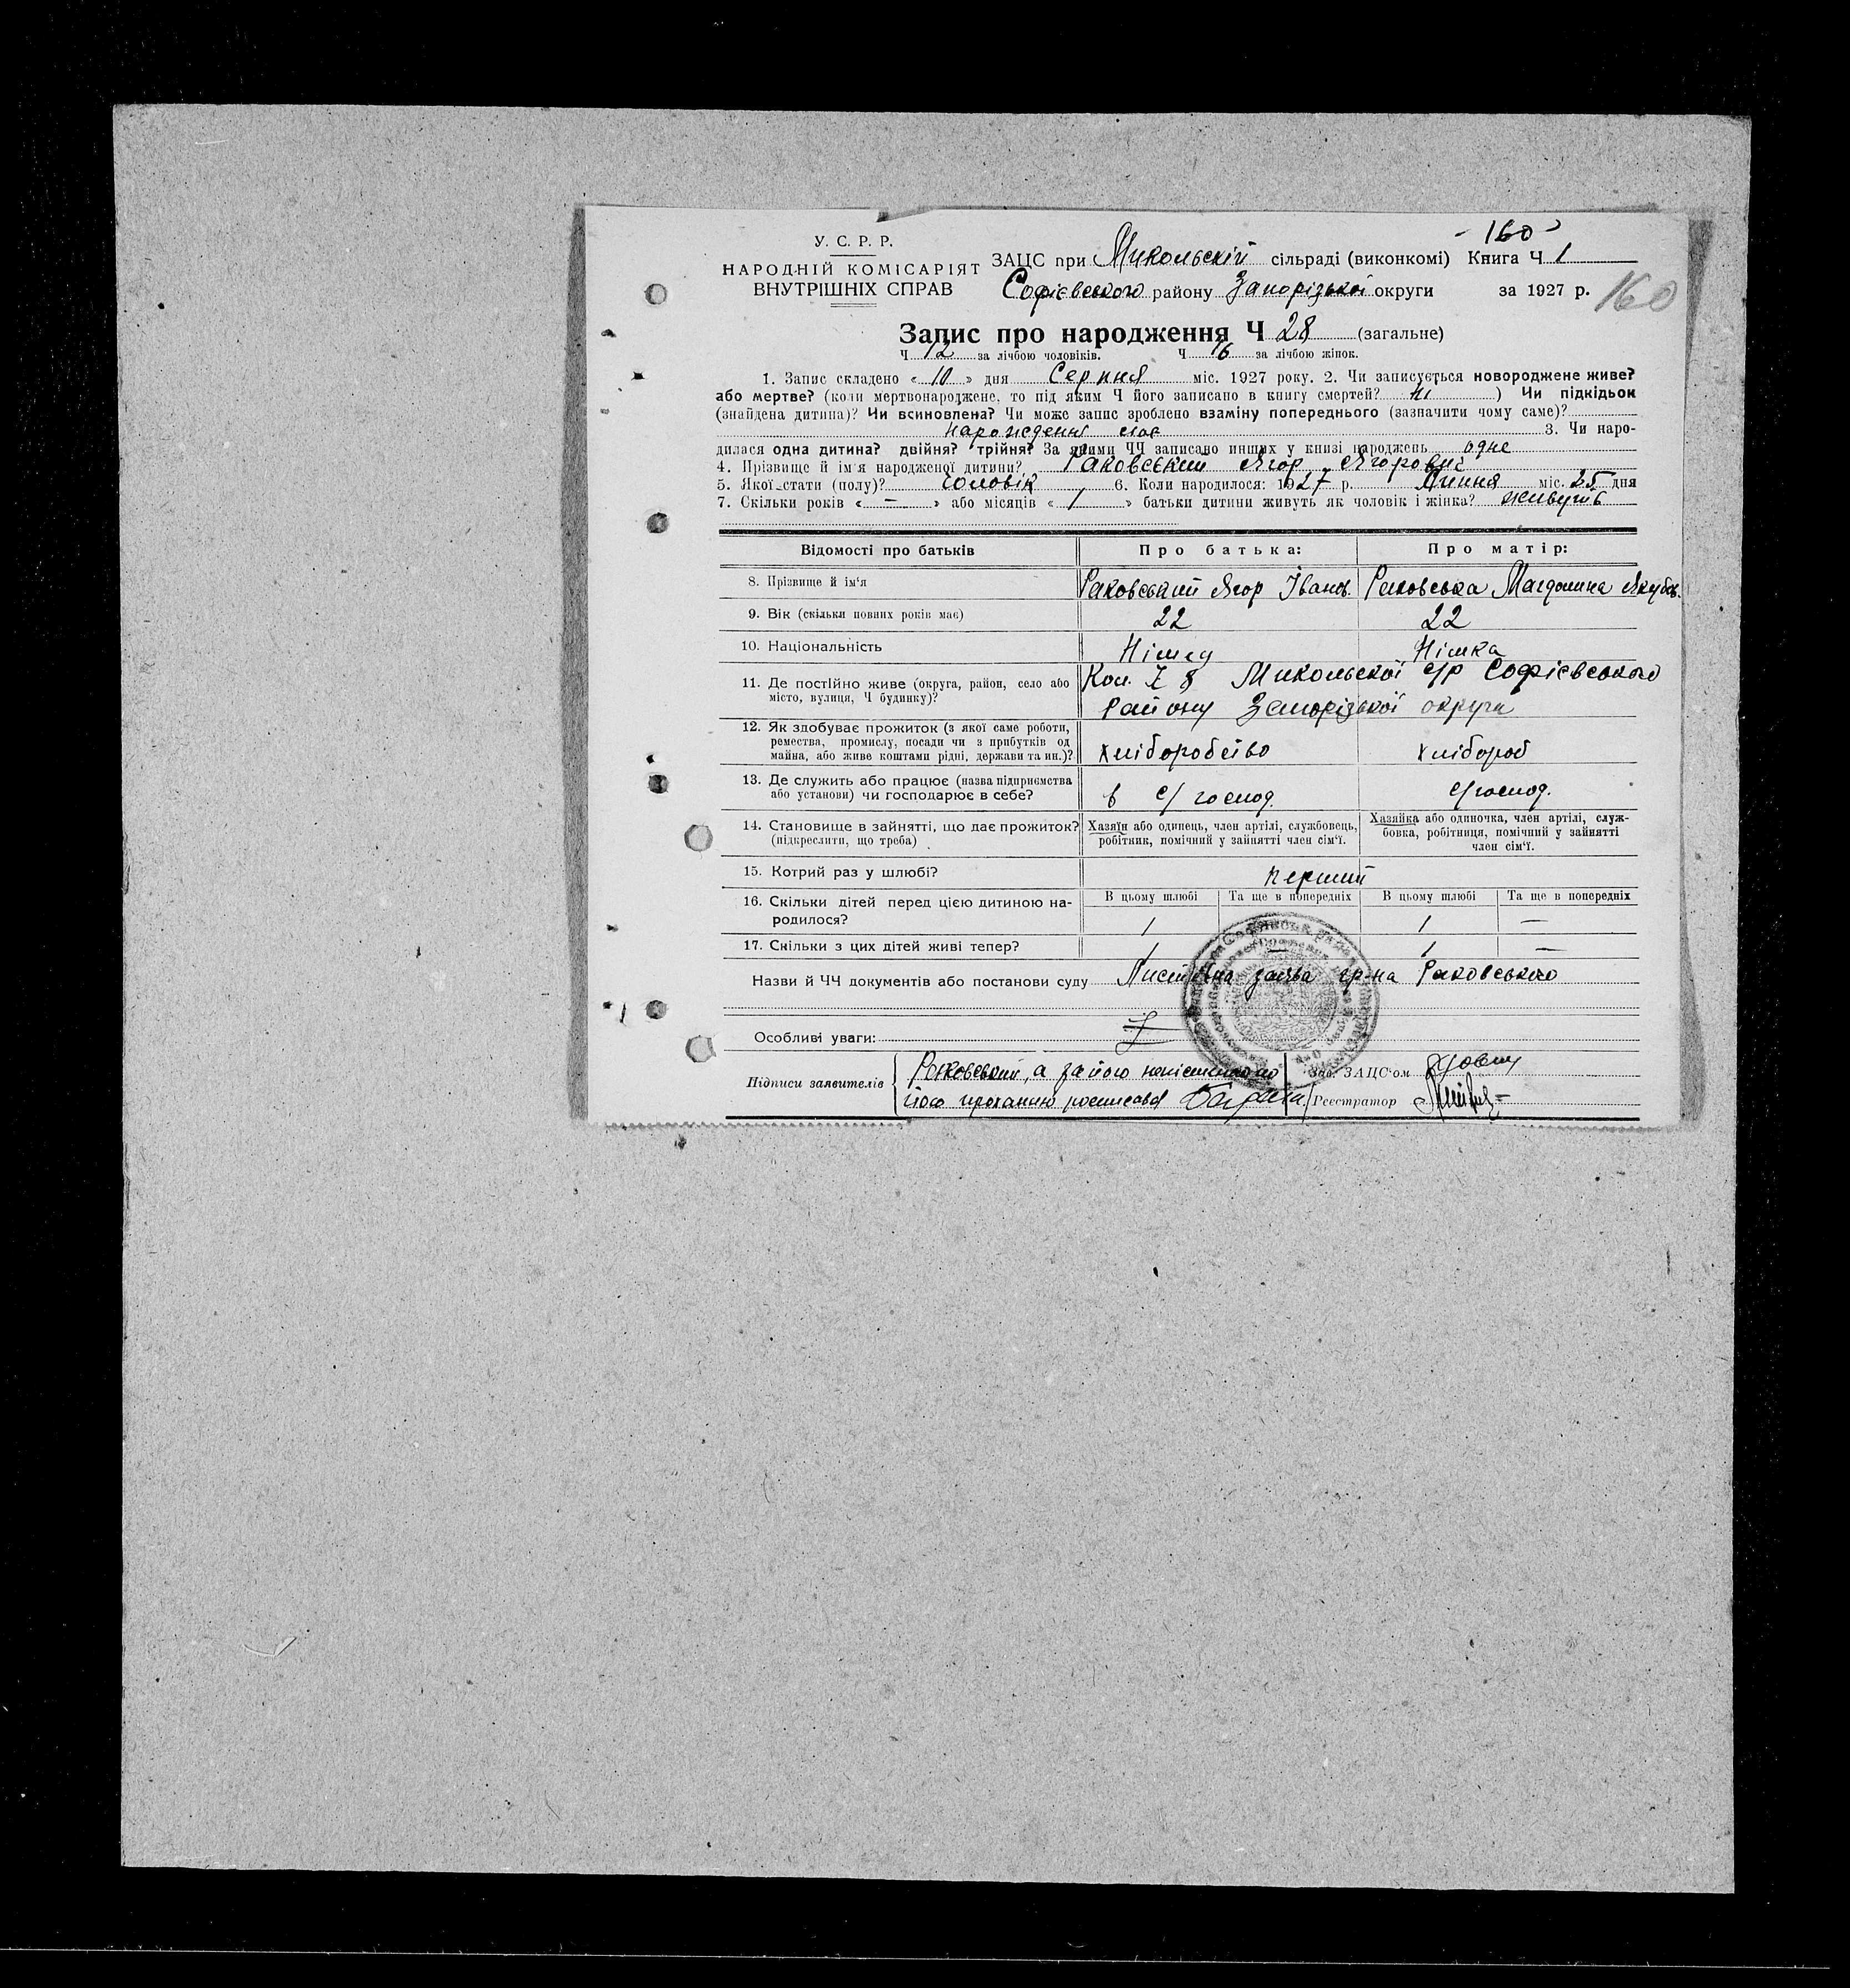 - 160 -
У. С. Р. Р.
НАРОДНІЙ КОМІСАРІЯТ
ВНУТРІШНІХ СПРАВ
ЗАЦС при Микольскій сільраді (виконкомі) Книга Ч 1
Софієвського району Запорізької округи за 1927 р. 160
Запис про народження Ч 28 (загальне)
Ч 12 за лічбою чоловіків. Ч 16 за лічбою жінок.
1. Запис складено « 10 » дня Серпня міс. 1927 року. 2. Чи записується новороджене живе?
або мертве? (коли мертвонароджене, то під яким Ч його записано в книгу смертей? ні ) Чи підкідьок
(знайдена дитина)? Чи всиновлена? Чи може запис зроблено взаміну попереднього (зазначити чому саме)?
нарождення 3. Чи наро-
дилася одна дитина? двійня? трійня? За якими ЧЧ записано инших у книзі народжень одне
4. Прізвище й ім'я народженої дитини? Раковський Ягор Ягорович
5. Якої стати (полу)? чоловік 6. Коли народилося: 1927 р. Липня міс. 25 дня
7. Скільки років « — » або місяців « 1 » батьки дитини живуть як чоловік і жінка? живуть
Відомості про батьків Про батька: Про матір:
8. Прізвище й ім'я Раковський Ягор Іванов. Раковська Магдолина Якубов.
9. Вік (скільки повних років має) 22 22
10. Національність Німец Німка
11. Де постійно живе (округа, район, село або місто, вулиця, Ч будинку)?
Кол. № 8 Микольської с/р Софієвського
району Запорізької округи
12. Як здобуває прожиток (з якої саме роботи,
ремества, промислу, посади чи з прибутків од
майна, або живе коштами рідні, держави та ин.)? хліборобство хлібороб
13. Де служить або працює (назва підприємства
або установи) чи господарює в себе? в с/господ. с/господ.
14. Становище в зайнятті, що дає прожиток?
(підкреслити, що треба)
Хазяїн або одинець, член артілі, службовець,
робітник, помічний у зайнятті член сім'ї.
Хазяйка або одиночка, член артілі, служ-
бовка, робітниця, помічний у зайнятті
член сім'ї.
15. Котрий раз у шлюбі? перший
16. Скільки дітей перед цією дитиною на-
родилося?
В цьому шлюбі Та ще в попередніх В цьому шлюбі Та ще в попередніх
1 1 —
17. Скільки з цих дітей живі тепер? 1 — 1 —
Назви й ЧЧ документів або постанови суду заява гр-на Раковського
Особливі уваги:
Підписи заявителів
Раковський, а за його неписьменно по
його проханню росписався
Зав. ЗАЦС'ом
Реєстратор